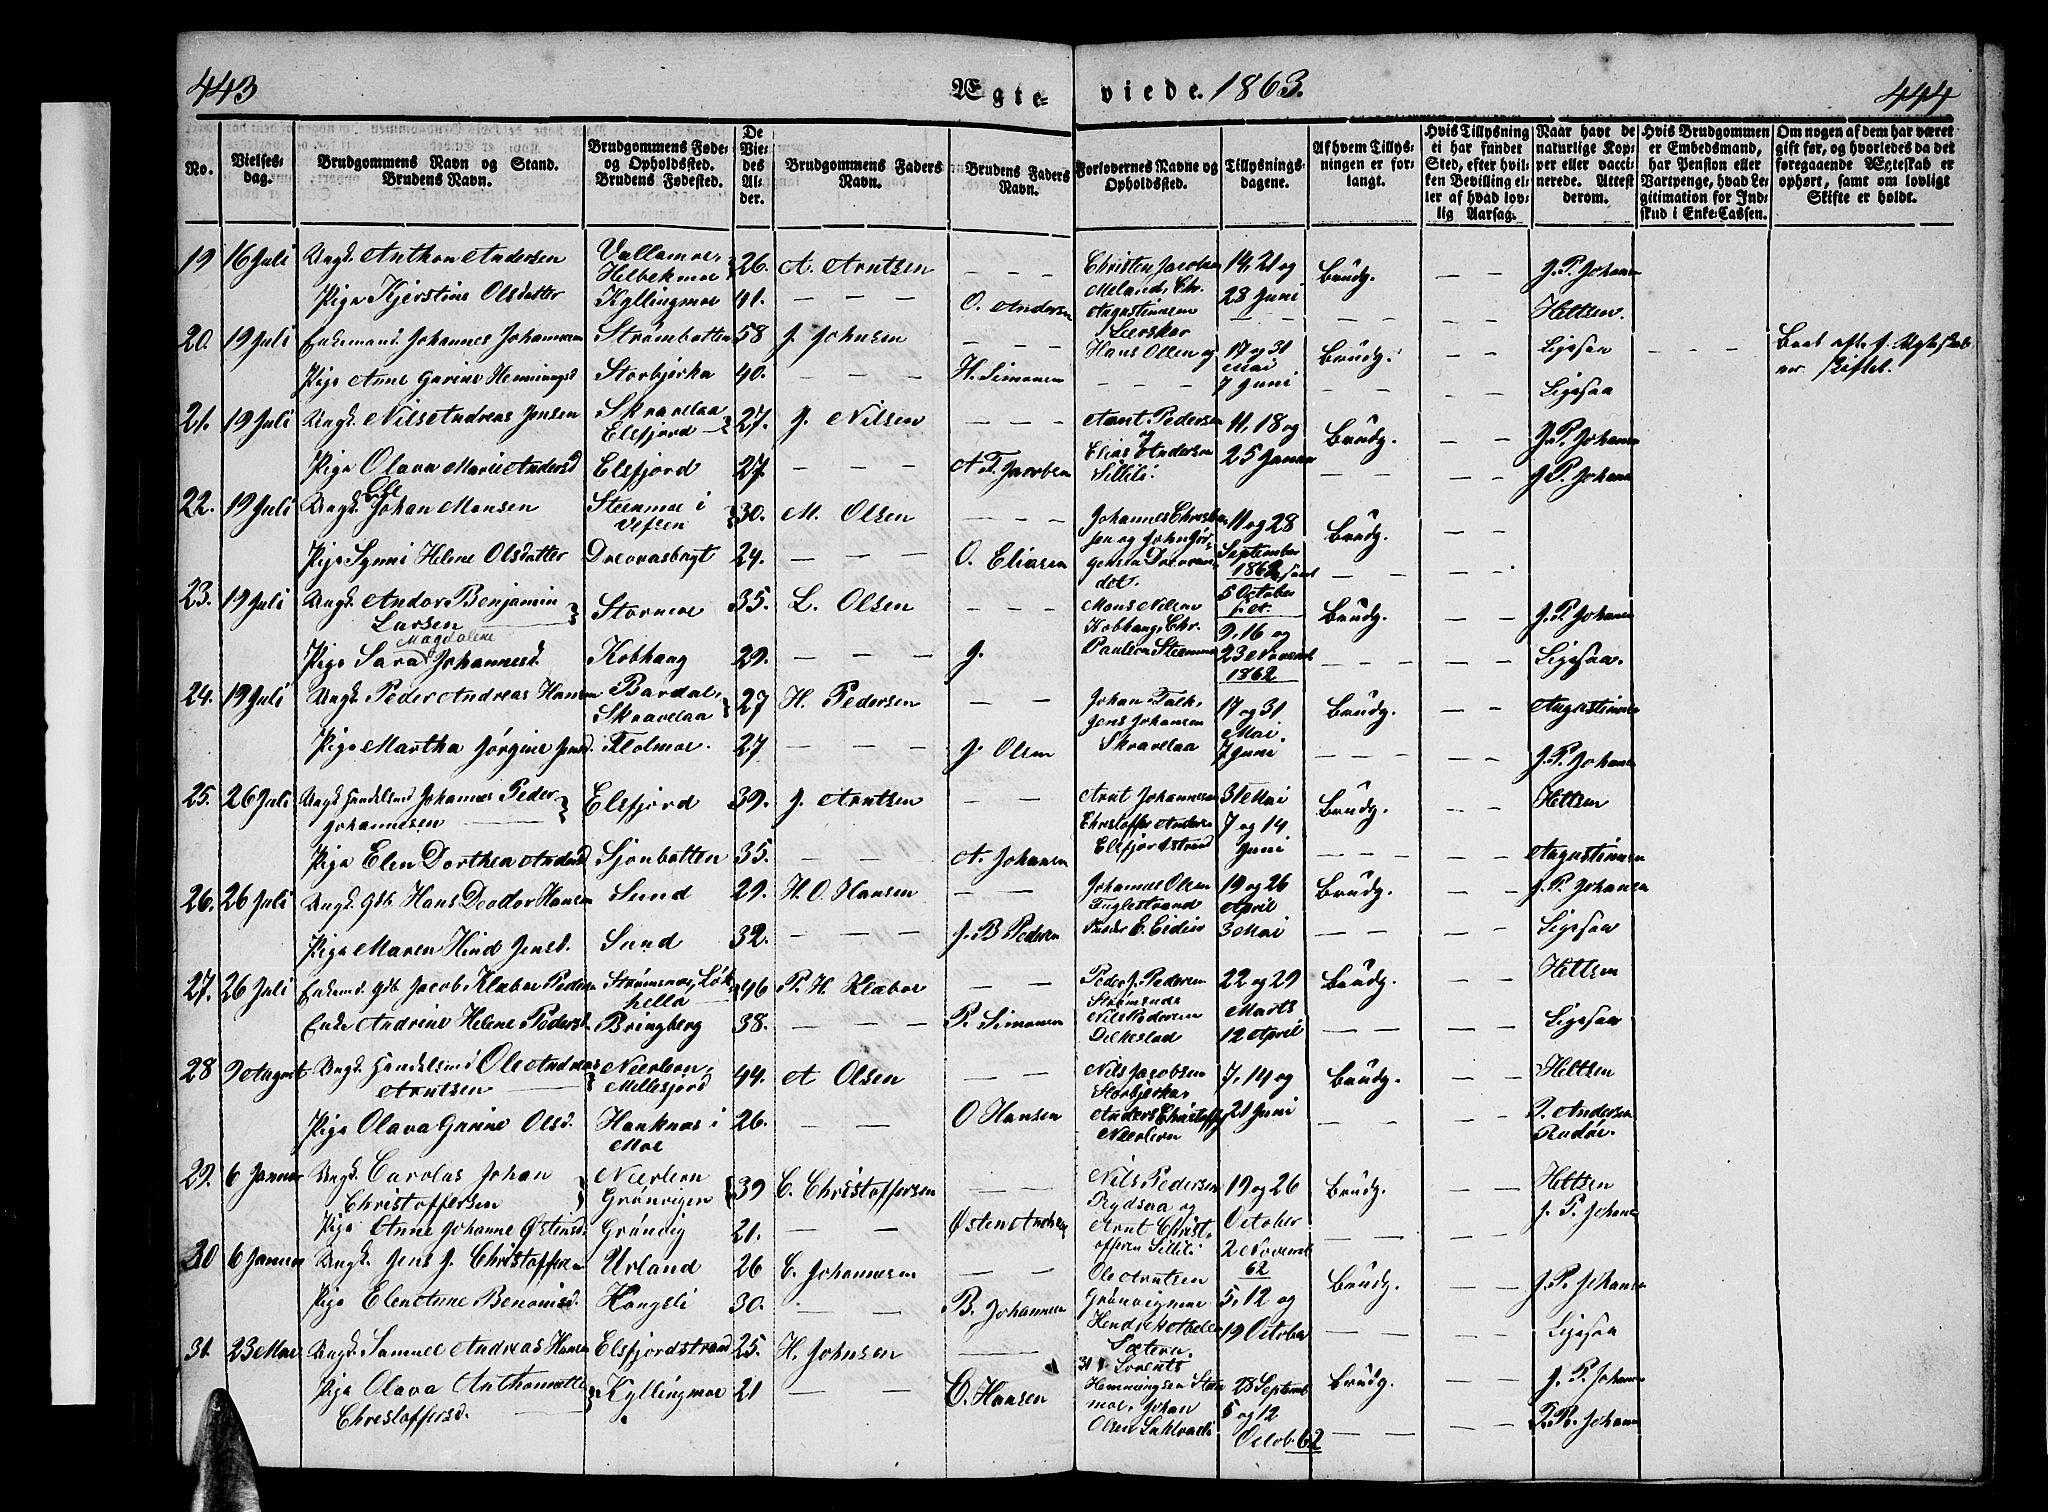 443 Ægte- viede. 1863. 444
No. Vielses-dag. Brudgommens Navn og Stand. Brudens Navn. Brudgommens Føde- og Opholdssted. Brudens Fødested. De Viedes Alder. Brudgommens Faders Navn. Brudens Faders Navn. Forlovernes Navne og Opholdssted. Tillysnings-dagene. Af hvem Tillysningen er forlangt. Hvis Tillysning ei har fundet Sted, efter hvilken Bevilling eller af hvad lovlig Aarsag. Naar havt de naturlige Kopper eller vaccinerede. Attest derom. Hvis Brudgommen er Embedsmand, har Pension eller Vartpenge, hvad Legitimation for Indskud i Enke-Cassen. Om nogen af dem har været gift før, og hvorledes da det foregaaende Ægteskab er ophørt, samt om lovligt Skifte er holdt.
19 16 Juli Ungk. Anthon Andersen Vallamoe, Helbekmoe 26. A. Arntsen — — — Christen Jacobsen 14, 21 og Brudg. — — J. P. Johansen
Pige Kjerstine Olsdatter Kyllingmoe 41. — — — O. Andersen Meland, Chr. Augustinusen Leerskar 28 Juni — — Heltzen.
20. 19 Juli Enkemand Johannes Johannesen Strømbotten 58 J. Johnsen — — — Hans Olsen og 17 og 31 Mai Brudg. — — Ligesaa — — —
Pige Anne Garine Hennings. Storbjerka 40. — — — H. Simonsen — — — 7 Juni — — Ligesaa
21. 19 Juli Ungk. Nils Andreas Jensen Skravelaa Elsfjord 27. J. Nilsen — — — Arnt Pedersen og 11, 18 og Brudg. — — J. P. Johansen
Pige Olava Marie Andersd Elsfjord 27 — — — A. T. Jacobsen Elias Andersen Sillili. 25 Januar — — J. P. Johansen
22. 19 Juli Ungk. Ole Johan Monsen Steenmoe i Vefsen 30. M. Olsen — — — 11 og 28 Brudg. — —
Pige Synni Helene Olsdatter Drevvasbugt 24. — — — O. Eliasen September 1862 samt 5 October — —
23. 19 Juli Ungk. Andor Benjamin Larsen Stormoe 35. L. Olsen — — — Mons Nilsen Kobhaug, Chr. 9, 16 og Brudg. — — J. P. Johansen
Pige Sara Magdalene Johannesd. Kobhaug 29. — — — J. Paulsen Steenmoe 23 Novemb 1862 — — — Ligesaa.
24. 19 Juli Ungk. Peder Andreas Hansen Bardal, Skravelaa 27 H. Pedersen — — Johan Falk, 17 og 31 Mai, Brudg. — — Augustinusen
Pige Martha Jørgine Jensd. Holmoe. 27 — — — J. Olsen Jens Johansen Skravelaa 7 Juni — — J. P. Johansen
25. 26 Juli Ungk Handelsmd Johannes Peder Johannesen Elsfjord 39. J. Arntsen — — Arnt Johannesen 31 Mai Brudg. — — Heltzen
Pige Elen Dorthea Andersd Sjonbotten 35. — — — A. Johansen Christoffer Anders. Elsfjordstrand 7 og 14 Juni — — — Augustinusen
26. 26 Juli Ungk. Gdb. Hans Deodor Hansen Sund 29. H. O. Hansen — — Johannes Olsen Fuglestrand 19 og 26 April Brudg. — — J. P. Johansen
Pige Maren Hind Jensd. Sund 32. — — — J. B. Pedersen 3 Mai — — Ligesaa
27. 26 Juli Enkemd. Gdb. Jacob Klæboe Pedersen 46 P. H. Klæboe — — Peder J. Pedersen Strømsnæs 22 og 29 Marts Brudg. — — Heltzen
Enke Andrine Helene Pedersd. Bringberg 38. — — — P. Simonsen Nils Pedersen Dilkestad 12 April — — Ligesaa
28 9 August Ungk. Handelsmd Ole Andreas Arntsen Neerleen, Millesjord 44. A Olsen — — Nils Jacobsen Storbjerka, 7, 14 og Brudg. — — Heltzen
Pige Olava Garine Olsd. Hauknæs i Moe 26. — — — O Hansen Anders Christoffs. Neerleen 21 Juni — — P. Andersen Rudøe.
29. 6 Januar Ungk. Carolus Johan Christoffersen Neerleen Grønvigen 39 C. Christoffersen — — Nils Pedersen Rydsaa og 19 og 26 Brudg. — — Heltzen
Pige Anne Johanne Østensd. Grønvig 21. — — Østen Andersen Arnt Christoffersen Sillili October 2 Novemb 62 — — J. P. Johansen
30 6 Januar Ungk. Jens J. Christoffersen Urland 26 C. Johannesen — — Ole Arntsen Grønvigmoe 5, 12 og Brudg. — — J. P. Johansen
Pige Elen Anne Benonisd. Kongsli 30. — — — B. Johannesen 19 October — — Ligesaa
31. 23 Mai Ungk. Samuel Andreas Hansen Elsfjordstrand 25. H. Johnsen — 31. Lorents Hemningsen 28 Septemb Brudg. — — J. P. Johansen
Pige Olava Anthonette Christoffersd. Kyllingmoe 21 — — C. Hansen Johan Olsen 5 og 12 Octob. 62 — — P. P. Johansen